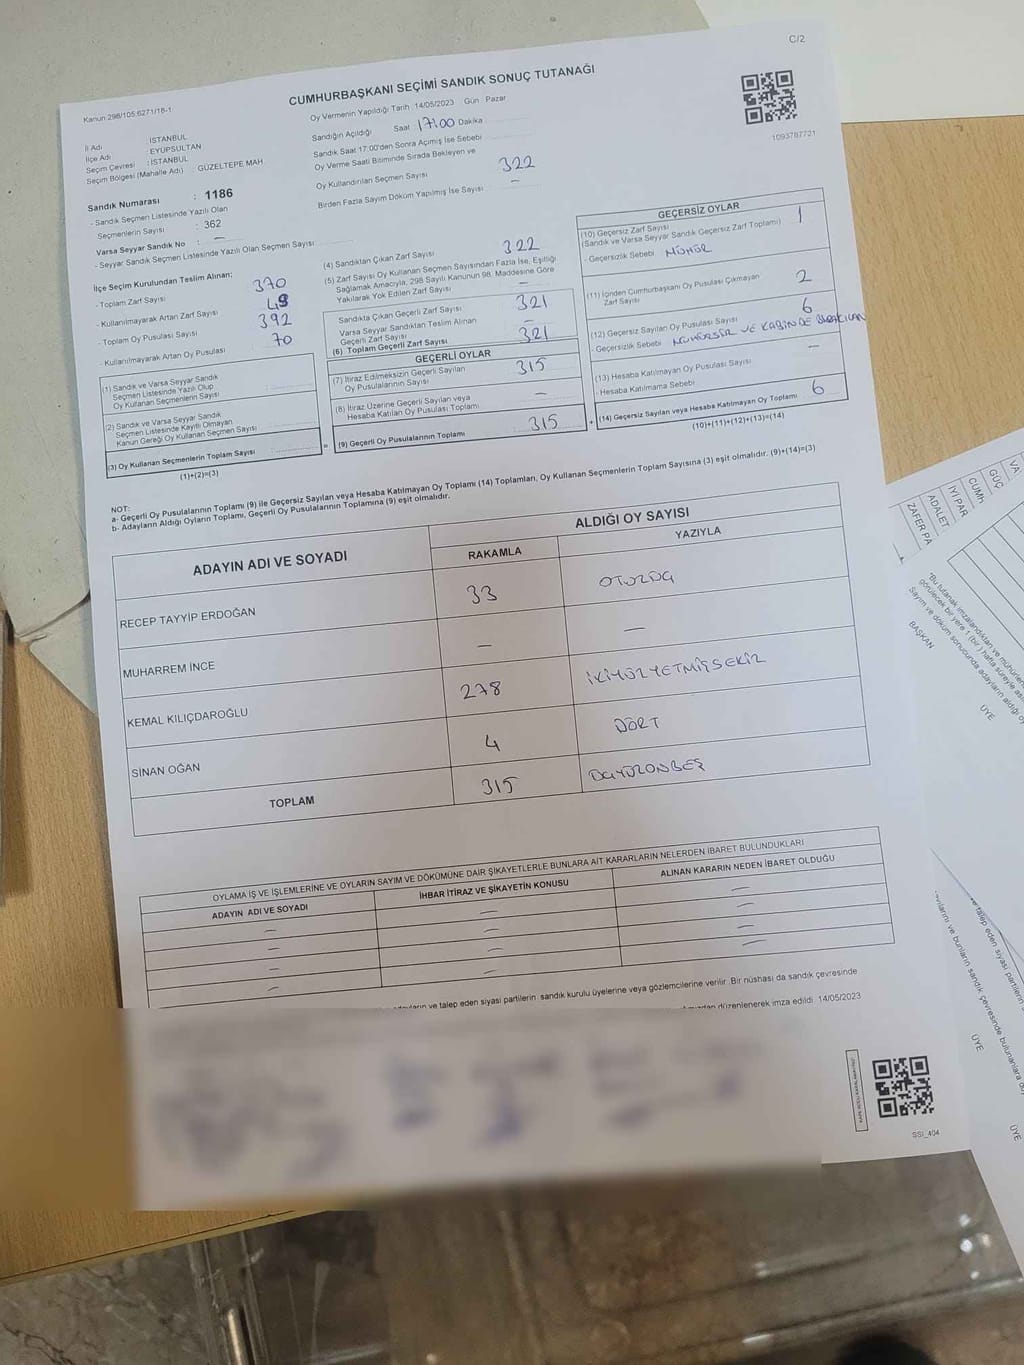 C/2
Kanun 298/105.6271/18-1
CUMHURBAŞKANI SEÇİMİ SANDIK SONUÇ TUTANAĞI
Oy Vermenin Yapıldığı Tarih : 14/05/2023 Gün : Pazar
İl Adı : İSTANBUL
İlçe Adı : EYÜPSULTAN
Seçim Çevresi : İSTANBUL
Seçim Bölgesi (Mahalle Adı) : GÜZELTEPE MAH.
Sandığın Açıldığı Saat 17:00 Dakika
Sandık Saat 17:00'den Sonra Açılmış İse Sebebi
Oy Verme Saati Bitiminde Sırada Bekleyen ve
Oy Kullandırılan Seçmen Sayısı 322
Birden Fazla Sayım Döküm Yapılmış İse Sayısı : –
1093787721
Sandık Numarası : 1186
- Sandık Seçmen Listesinde Yazılı Olan
Seçmenlerin Sayısı : 362
Varsa Seyyar Sandık No : –
- Seyyar Sandık Seçmen Listesinde Yazılı Olan Seçmen Sayısı
İlçe Seçim Kurulundan Teslim Alınan:
- Toplam Zarf Sayısı 370
- Kullanılmayarak Artan Zarf Sayısı 48
- Toplam Oy Pusulası Sayısı 392
- Kullanılmayarak Artan Oy Pusulası 70
(1) Sandık ve Varsa Seyyar Sandık
Seçmen Listesinde Yazılı Olup
Oy Kullanan Seçmenlerin Sayısı
(2) Sandık ve Varsa Seyyar Sandık
Seçmen Listesinde Kayıtlı Olmayan
Kanun Gereği Oy Kullanan Seçmen Sayısı
(3) Oy Kullanan Seçmenlerin Toplam Sayısı
(1)+(2)=(3)
(4) Sandıktan Çıkan Zarf Sayısı 322
(5) Zarf Sayısı Oy Kullanan Seçmen Sayısından Fazla İse, Eşitliği
Sağlamak Amacıyla, 298 Sayılı Kanunun 98. Maddesine Göre
Yakılarak Yok Edilen Zarf Sayısı –
Sandıkta Çıkan Geçerli Zarf Sayısı 321
Varsa Seyyar Sandıktan Teslim Alınan
Geçerli Zarf Sayısı –
(6) Toplam Geçerli Zarf Sayısı 321
GEÇERLİ OYLAR
(7) İtiraz Edilmeksizin Geçerli Sayılan
Oy Pusulalarının Sayısı 315
(8) İtiraz Üzerine Geçerli Sayılan veya
Hesaba Katılan Oy Pusulası Toplamı –
= (9) Geçerli Oy Pusulalarının Toplamı 315
GEÇERSİZ OYLAR
(10) Geçersiz Zarf Sayısı
(Sandık ve Varsa Seyyar Sandık Geçersiz Zarf Toplamı) 1
- Geçersizlik Sebebi MÜHÜR
(11) İçinden Cumhurbaşkanı Oy Pusulası Çıkmayan
Zarf Sayısı 2
(12) Geçersiz Sayılan Oy Pusulası Sayısı 6
- Geçersizlik Sebebi MÜHÜRSÜR VE KABİNDE BIRAKILAN
(13) Hesaba Katılmayan Oy Pusulası Sayısı –
- Hesaba Katılmama Sebebi
+ (14) Geçersiz Sayılan veya Hesaba Katılmayan Oy Toplamı 6
(10)+(11)+(12)+(13)=(14)
NOT:
a- Geçerli Oy Pusulalarının Toplamı (9) ile Geçersiz Sayılan veya Hesaba Katılmayan Oy Toplamı (14) Toplamları, Oy Kullanan Seçmenlerin Toplam Sayısına (3) eşit olmalıdır. (9)+(14)=(3)
b- Adayların Aldığı Oyların Toplamı, Geçerli Oy Pusulalarının Toplamına (9) eşit olmalıdır.
ADAYIN ADI VE SOYADI
ALDIĞI OY SAYISI
RAKAMLA YAZIYLA
RECEP TAYYİP ERDOĞAN 33 OTUZÜÇ
MUHARREM İNCE – –
KEMAL KILIÇDAROĞLU 278 İKİYÜZYETMİŞSEKİZ
SİNAN OĞAN 4 DÖRT
TOPLAM 315 ÜÇYÜZONBEŞ
OYLAMA İŞ VE İŞLEMLERİNE VE OYLARIN SAYIM VE DÖKÜMÜNE DAİR ŞİKAYETLERLE BUNLARA AİT KARARLARIN NELERDEN İBARET BULUNDUKLARI
ADAYIN ADI VE SOYADI İHBAR İTİRAZ VE ŞİKAYETİN KONUSU ALINAN KARARIN NEDEN İBARET OLDUĞU
– – –
– – –
– – –
– – –
ve talep eden siyasi partilerin sandık kurulu üyelerine veya gözlemcilerine verilir. Bir nüshası da sandık çevresinde
düzenlenerek imza edildi. 14/05/2023
SSI_404
VA
GÜÇ
CUMH
İYİ PAR
ADALET
ZAFER PA
"Bu tutanak imzalandıktan ve mühürlen
görülecek bir yere 1 (bir) hafta süreyle ası
Sayım ve döküm sonucunda adayların aldığı oy
BAŞKAN
ÜYE
ve talep eden siyasi partilerin
ÜYE
ÜYE